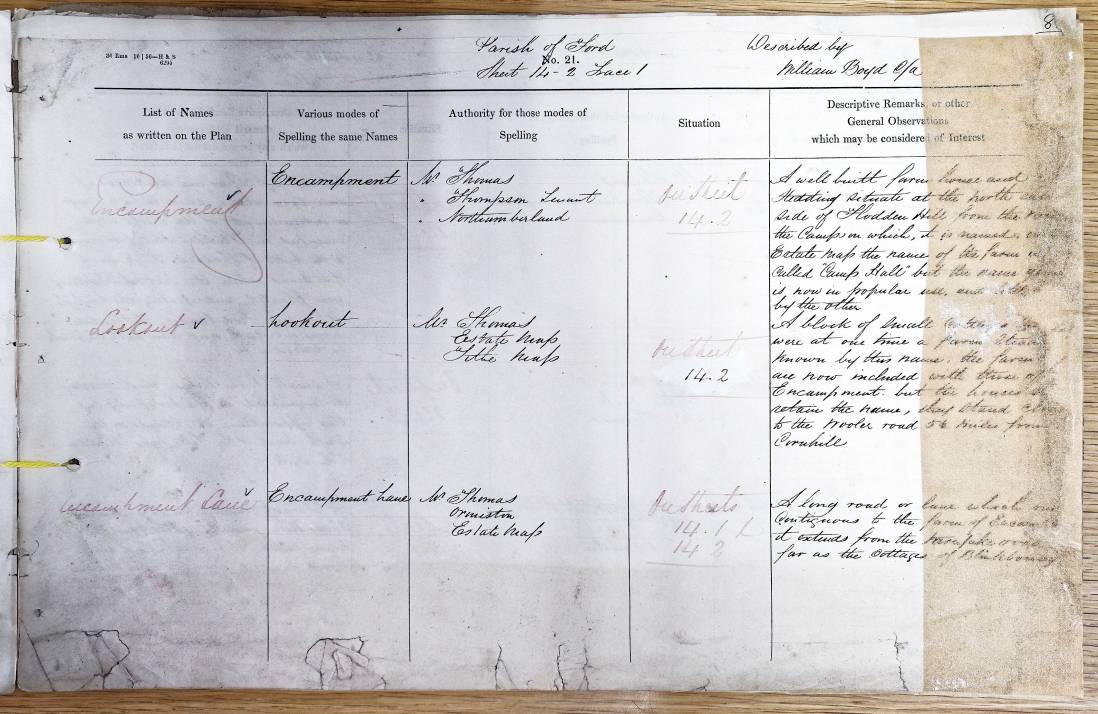 8
24 Rms 10 | 56—H & S
6205
Parish of Ford
No. 21.
Sheet 14-2 Trace 1
Described by
William Boyd C/a
List of Names
as written on the Plan
Various modes of
Spelling the same Names
Authority for those modes of
Spelling
Situation
Descriptive Remarks, or other
General Observations
which may be considered of Interest
Encampment
Encampment
Mr Thomas
" Thompson Tenant
" Northumberland
On Sheet
14.2
A well built farm house and
Steading situate at the north
side of Flodden Hill from the
the Camp on which, it is named.
Estate Map the name of the farm
Called "Camp Hall" but the name
is now in popular use, and
by the other
Lookout
Lookout
Mr Thomas
Estate Map
Tithe Map
On Sheet
14.2
A block of small cottages
were at one time a farm Stead
known by this name. the farm
are now included with those of
Encampment. but the houses
retain the name, they stand close
to the Wooler road 5½ miles from
Cornhill
Encampment Lane
Encampment Lane
Mr Thomas
Ormiston
Estate Map
On Sheets
14.1
14.2
A long road or lane which
Contiguous to the farm of Encam
it extends from the turnpike road
far as the Cottages of Blinkbonny